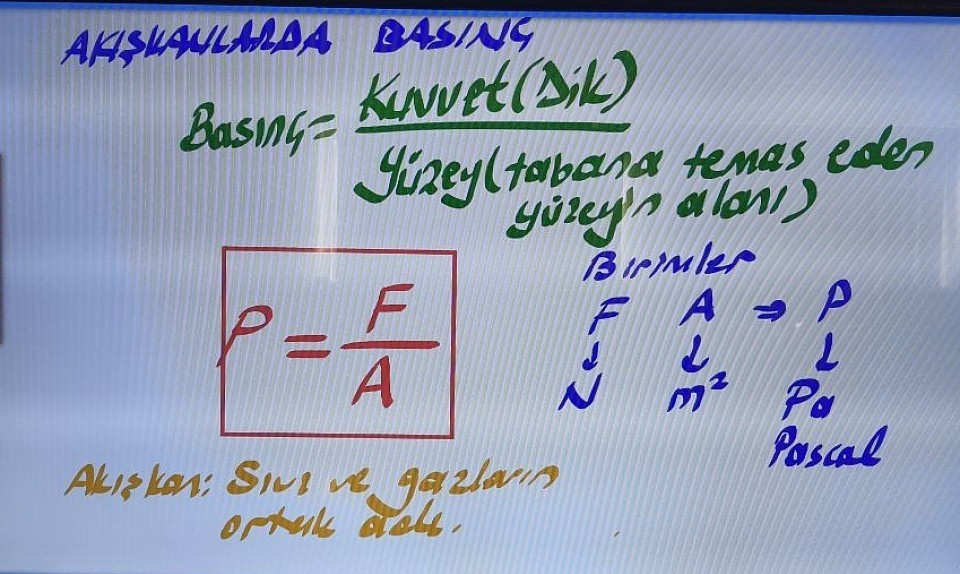 AKIŞKANLARDA BASINÇ
Basınç = Kuvvet (Dik)
Yüzey (tabana temas eden
yüzeyin alanı)
P = F
A
Birimler
F A ⇒ P
↓ ↓ ↓
N m² Pa
Pascal
Akışkan: Sıvı ve gazların
ortak adı.